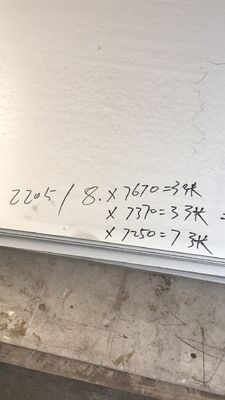 2205/8.×7670=3张
×7370=3张
×7250=7张